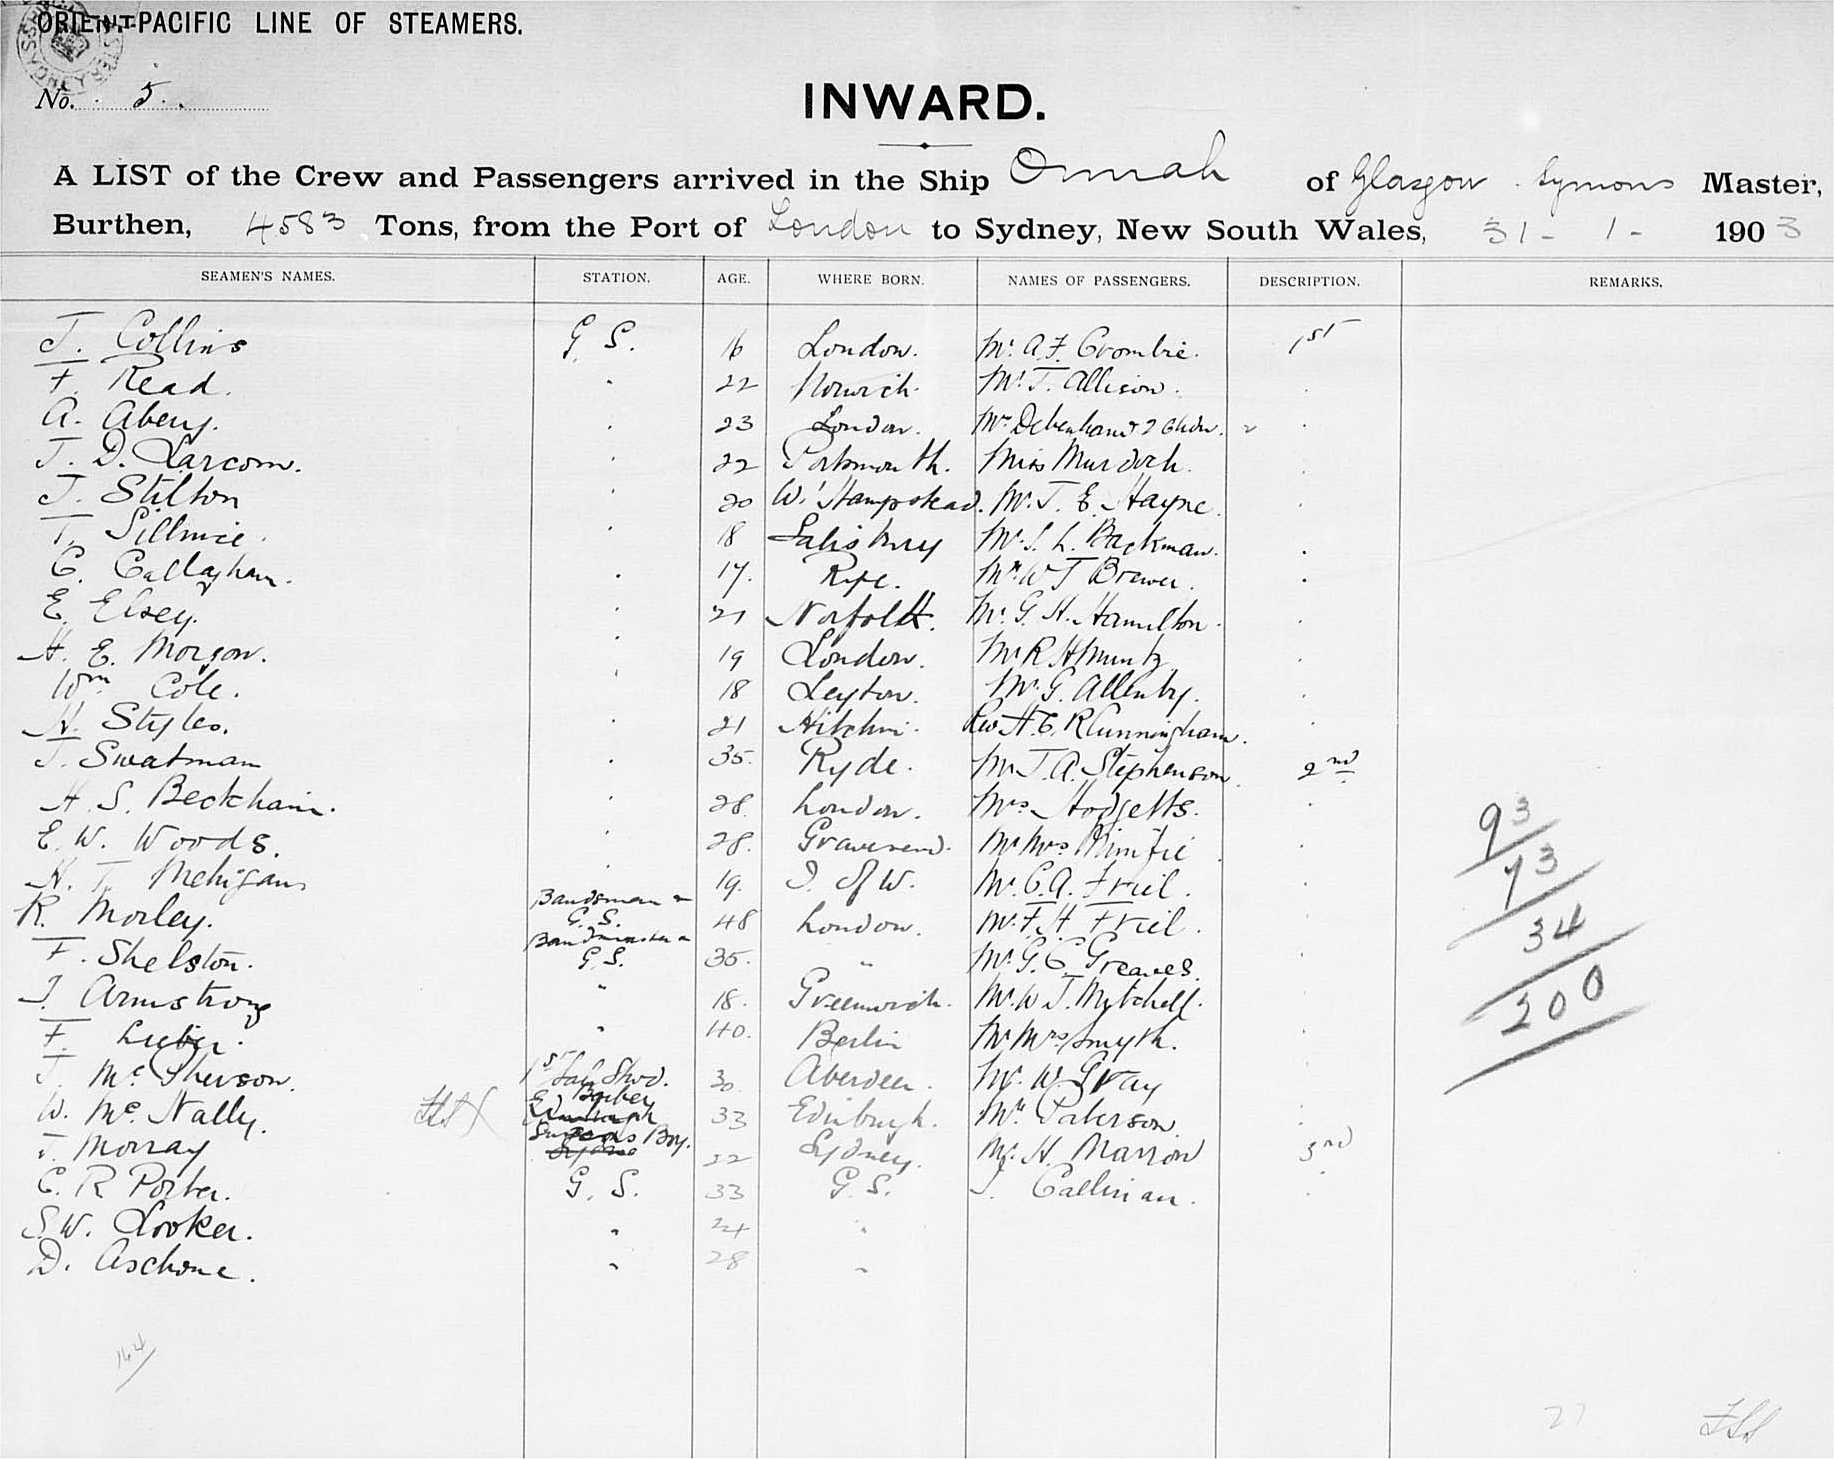 ORIENT-PACIFIC LINE OF STEAMERS.
No. 5.
INWARD.
A LIST of the Crew and Passengers arrived in the Ship Ormah of Glasgow. Symons Master,
Burthen, 4583 Tons, from the Port of London to Sydney, New South Wales, 31 - 1 - 1903
SEAMEN'S NAMES. STATION. AGE. WHERE BORN. NAMES OF PASSENGERS. DESCRIPTION. REMARKS.
J. Collins G. S. 16 London. Mr. A. F. Crombie. 1st
F. Read. " 22 Norwich. Mr. T. Allison. "
A. Abery. " 23 London. Mrs Debenham & 2 Chdn. 2 "
J. D. Larcom. " 22 Portsmouth. Miss Murdoch. "
J. Stilton " 20 W. Hampstead. Mr. J. E. Hayne. "
T. Sillmie. " 18 Salisbury Mr. S. L. Backman. "
C. Callaghan. " 17. Rye. Mr. W T Brewer. "
E. Elsey. " 21 Norfolk. Mr. G. H. Hamilton. "
H. E. Morgan. " 19 London. Mr R H Muntz "
Wm Cole. " 18 Leyton. Mr. G. Allenby. "
H. Styles. " 21 Hitchin. Rev H. C. R Cunningham. "
J. Swatman " 35. Ryde. Mr J. A. Stephenson. 2nd
H. S. Beckham. " 28. London. Mrs Hodgetts. "
E. W. Woods. " 28. Gravesend. Mr Mrs Minifie "
H. T. Mehigan " 19. I. of W. Mr. C. A. Friel. "
R. Morley. Bandsman & G. S. 48 London. Mr. F. H Friel. "
F. Shelston. Bandmaster & G. S. 35. " Mr. G. C. Greaves. "
J. Armstrong " 18. Greenwich. Mr. W J. Mitchell. "
F. Lieber. " 40. Berlin Mr Mrs Smyth. "
J. McPherson. 1st Sal. Stwd. 30. Aberdeen. Mr. W. Gray "
W. McNally. E. Barber 33 Edinburgh. Mr. Paterson. "
J. Morray Surgeons Boy. 22 Sydney. Mr. H. Marron 3rd
C. R Porter. G. S. 33 G. S. J. Callinan. "
S W. Looker. " 24 "
D. Aschone. " 28 "
93
73
34
200
164
27